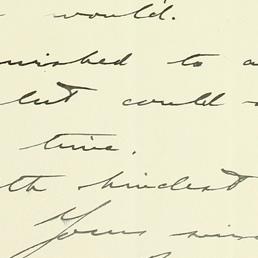 would.
nished to a
but could
time.
th kindest
Yours sin